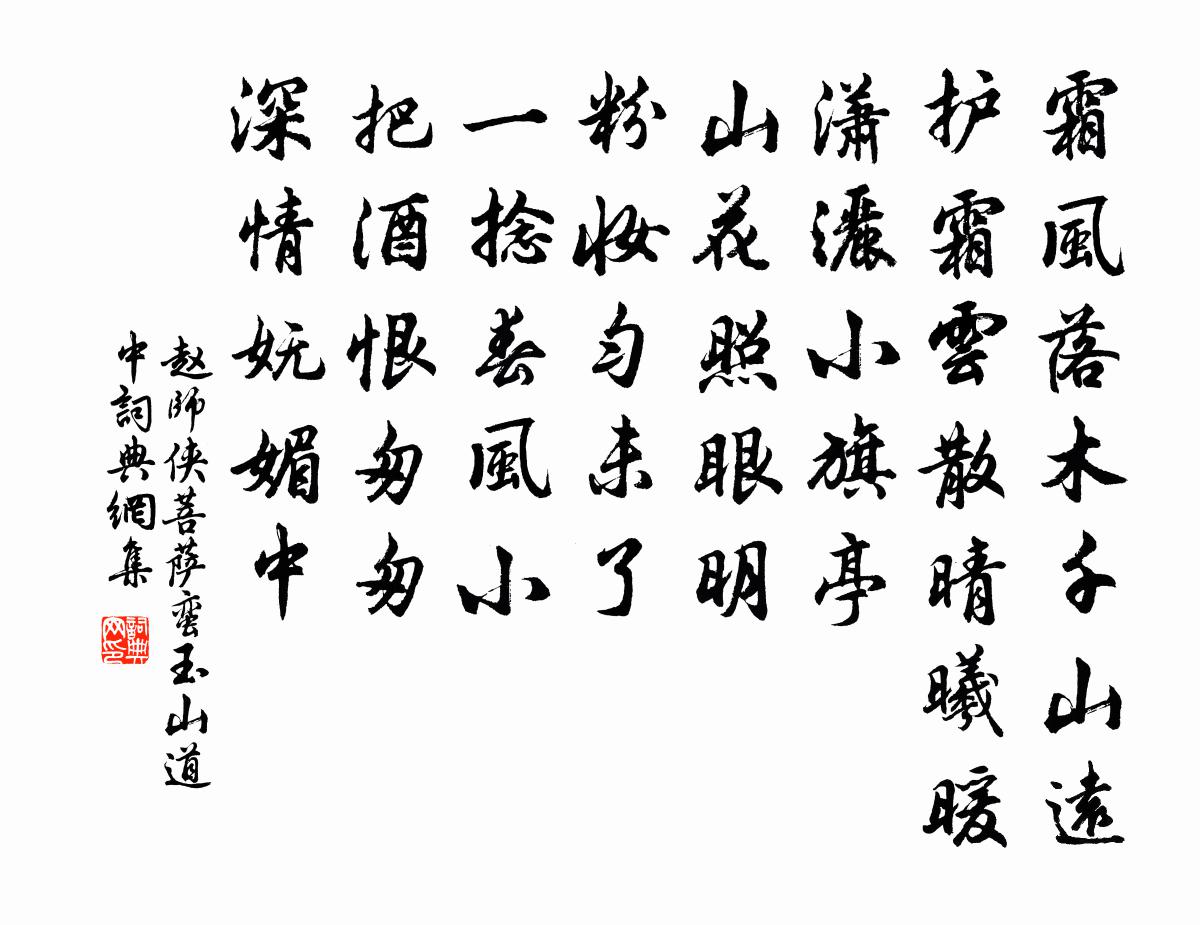 霜風落木千山遠
护霜雲散晴曦暖
潇灑小旗亭
山花照眼明
粉妆匀未了
一捻春風小
把酒恨匆匆
深情妩媚中
赵師侠菩萨蛮玉山道
中詞典網集
詞典
网印